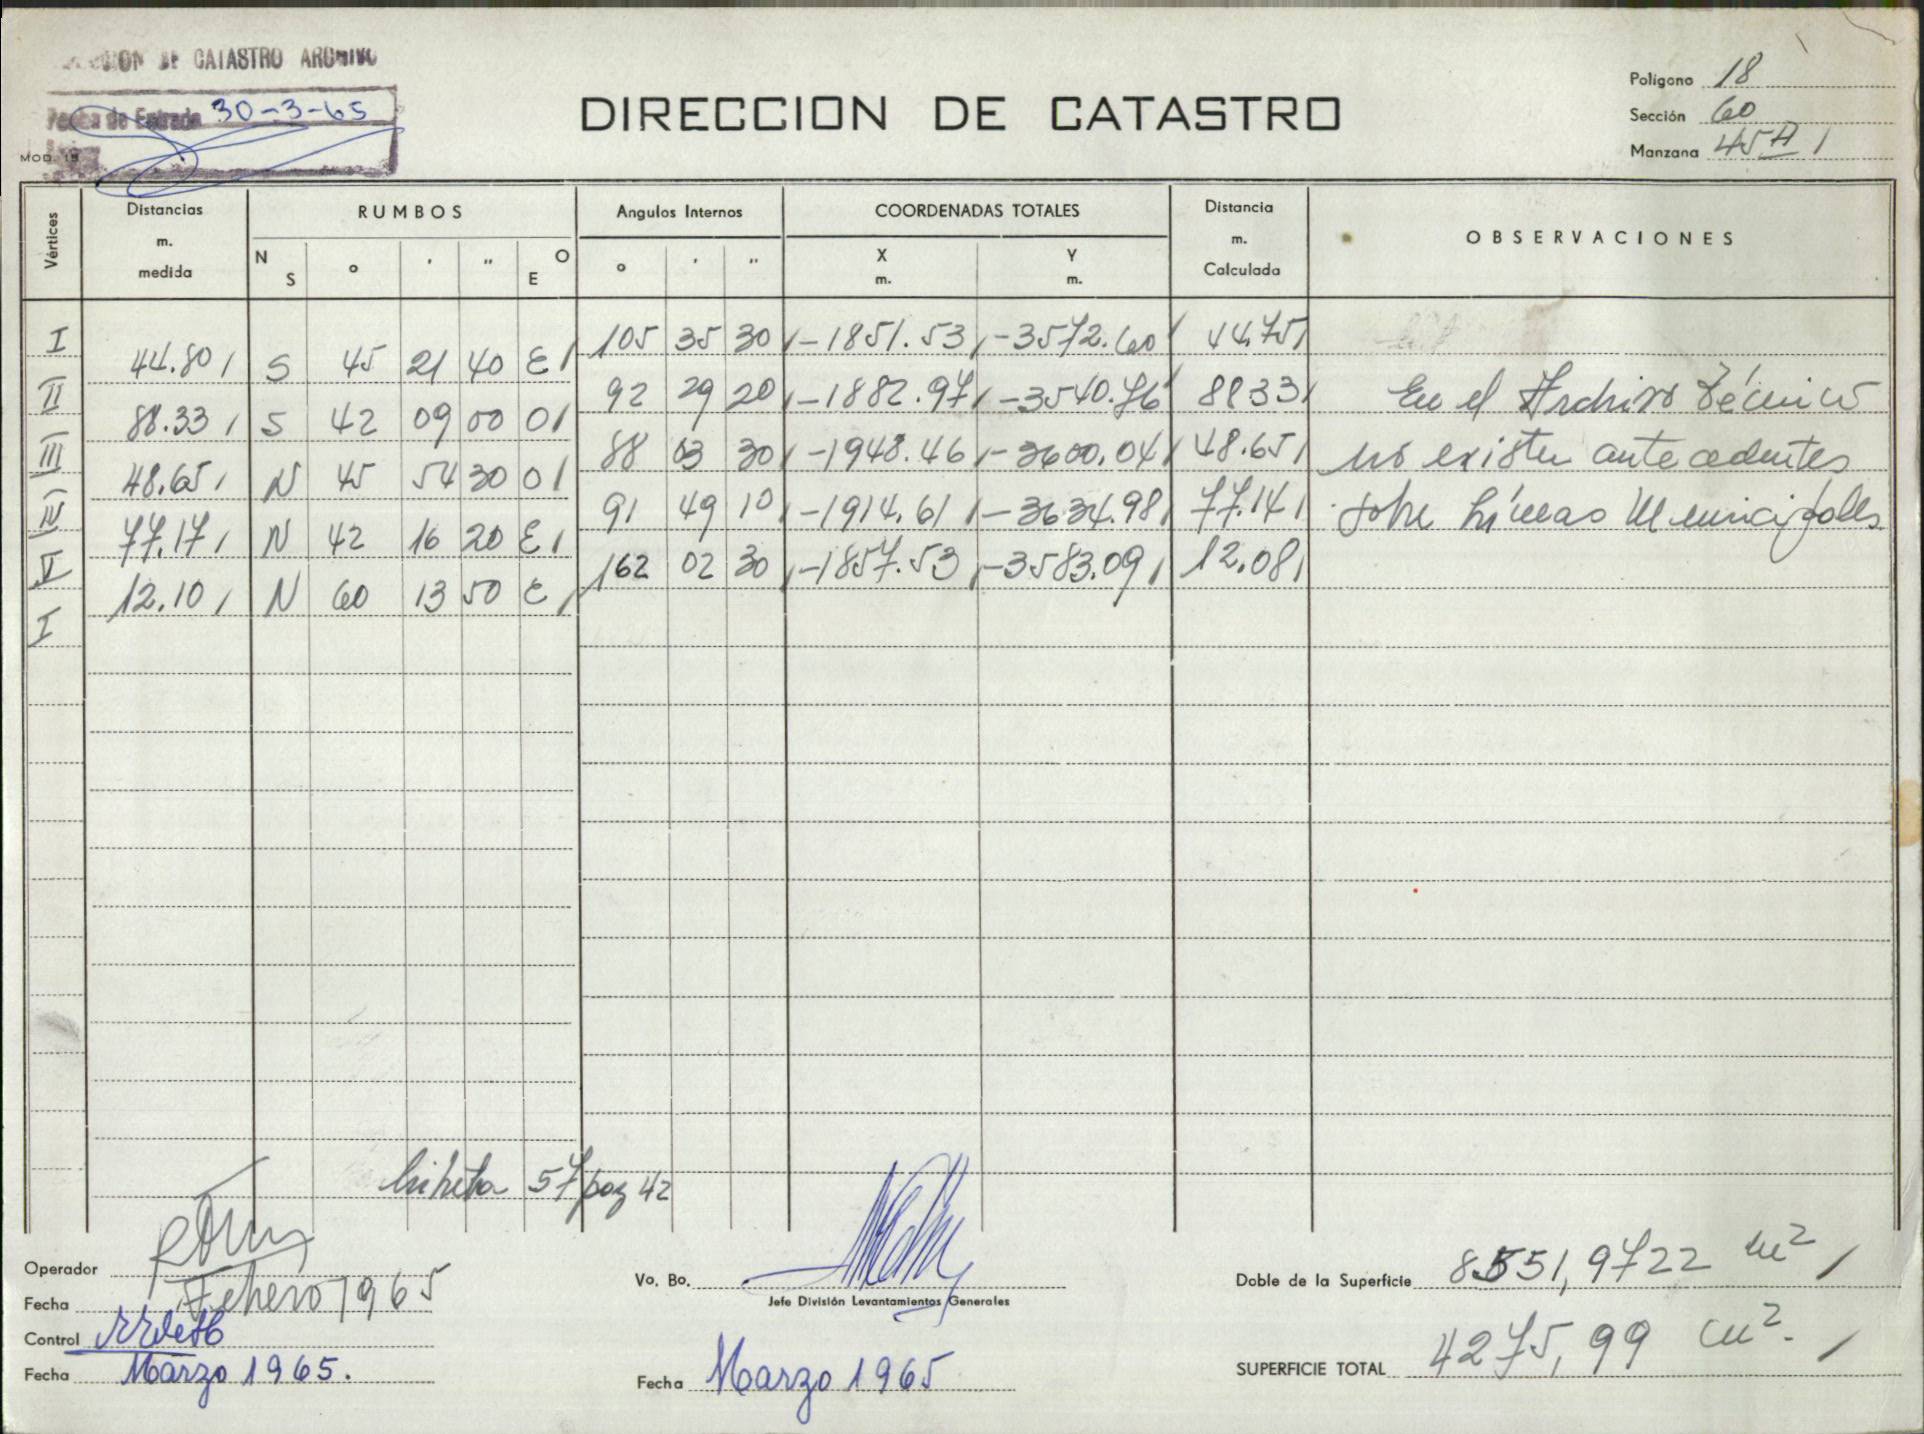 DE CATASTRO ARCHIVO
Fecha de Entrada 30-3-65
MOD. 19
DIRECCION DE CATASTRO
Polígono 18
Sección 60
Manzana 45A
Vértices Distancias m. medida RUMBOS N S ° ' " O E Angulos Internos ° ' " COORDENADAS TOTALES X m. Y m. Distancia m. Calculada OBSERVACIONES
I 105 35 30 -1851.53 -3572.60 44.75
44.80 S 45 21 40 E
II 92 29 20 -1882.97 -3540.76 88.33 En el Archivo Técnico
88.33 S 42 09 00 O
III 88 03 30 -1948.46 -3600.04 48.65 no existen antecedentes
48.65 N 45 54 30 O
IV 91 49 10 -1914.61 -3634.98 77.14 sobre Líneas Municipales
77.17 N 42 16 20 E
V 162 02 30 -1857.53 -3583.09 12.08
12.10 N 60 13 50 E
I
libreta 57 pag 42
Operador
Fecha Febrero 1965
Control
Fecha Marzo 1965.
Vo. Bo.
Jefe División Levantamientos Generales
Fecha Marzo 1965
Doble de la Superficie 8551,9722 m²
SUPERFICIE TOTAL 4275,99 m².